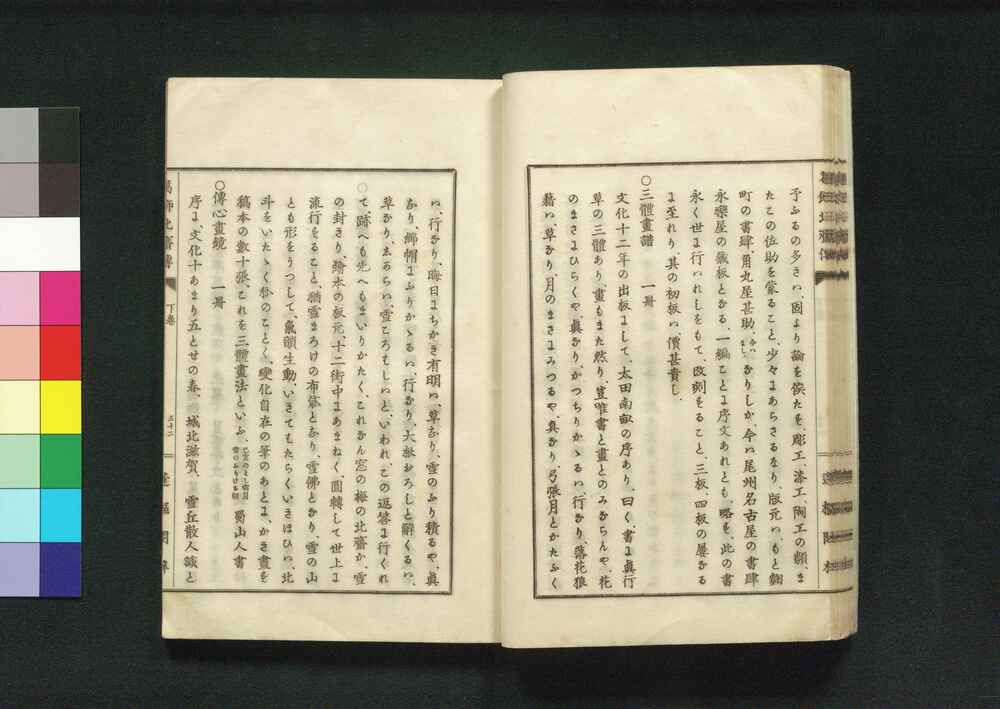 予ふるの多きハ、固より論を俟たを、彫工、漆工、陶工の類、ま
たこの佐助を蒙ること、少々まあらさるなり、版元ハ、もと麹
町の書肆、角丸屋甚助、なりしか、今ハ尾州名古屋の書肆
永樂屋の蔵板となる、一編ことよ序文あれとも、略を、此の書
永く世よ行ハれしをもて、改刻をること、三板、四板の屢なる
よ至れり、其の初板ハ、價甚貴し、
〇三體畫譜　一冊
文化十二年の出板よして、太田南畝の序あり、曰く、書よ眞行
草の三體あり、畫もまた然り、豈唯書と畫とのみならんや、花
のまさよひらくや、眞なり、かつちりかゝるハ、行なり、落花狼
藉ハ、草なり、月のまさよみつるや、眞なり、弓張月とかたふく
ハ、行なり、晦日よちかき有明ハ、草なり、雪のふり積るや、眞
なり、綿帽よふりかゝるハ、行なり、大根おろしと解くるハ、
草なり、
て、跡へも先へもまいりかたく、これなん窓の梅の北齋か、雪
の封きり、繪本の板元、十二街中よあまねく、圓轉して世上よ
流行をること、猶雪まろけの布袋となり、雪佛となり、雪の山
とも形をうつして、氣韻生動、いきてもたらくいきほひハ、北
斗をいたゝく
稿本の數十張、これを三體畫法といふ、蜀山人書
〇傳心畫鏡　一冊
序よ、文化十あまり五とせの春、城北滋賀、雪丘散人識と
下卷
五十二